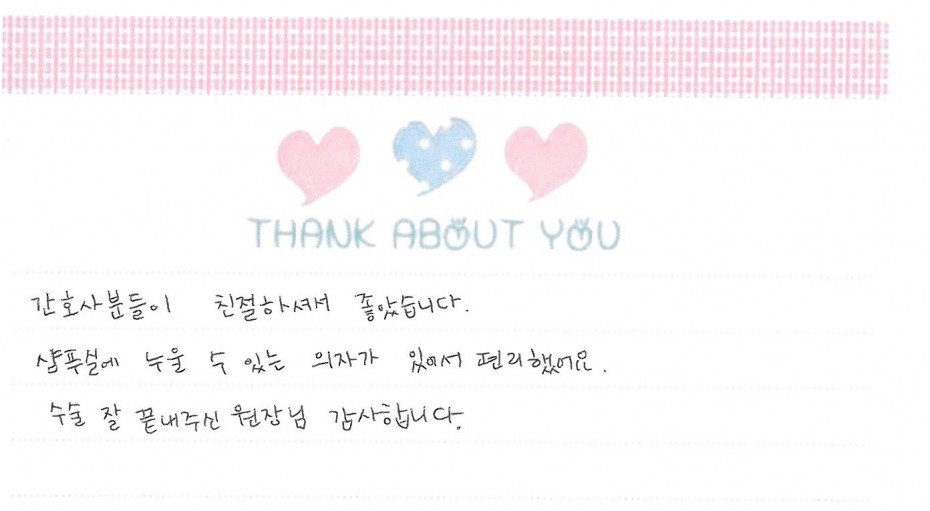 THANK ABOUT YOU
간호사분들이 친절하셔서 좋았습니다.
샴푸실에 누울 수 있는 의자가 있어서 편리했어요.
수술 잘 끝내주신 원장님 감사합니다.